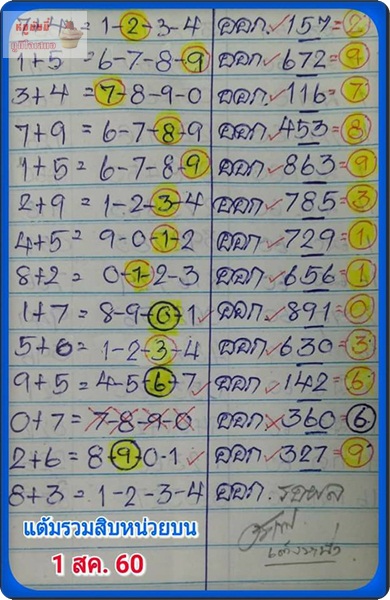 7+4 = 1-2-3-4 ออก ✓ 157 = 2
1+5 = 6-7-8-9 ออก ✓ 672 = 9
3+4 = 7-8-9-0 ออก ✓ 116 = 7
7+9 = 6-7-8-9 ออก ✓ 453 = 8
1+5 = 6-7-8-9 ออก ✓ 863 = 9
2+9 = 1-2-3-4 ออก ✓ 785 = 3
4+5 = 9-0-1-2 ออก ✓ 729 = 1
8+2 = 0-1-2-3 ออก ✓ 656 = 1
1+7 = 8-9-0-1 ✓ ออก ✓ 891 = 0
5+6 = 1-2-3-4 ออก ✓ 630 = 3
9+5 = 4-5-6-7 ✓ ออก ✓ 142 = 6
0+7 = 7-8-9-0 ออก × 360 = 6
2+6 = 8-9-0-1 ✓ ออก ✓ 327 = 9
8+3 = 1-2-3-4 ออก. รอผล
แต้มรวมสิบหน่วยบน
1 สค. 60